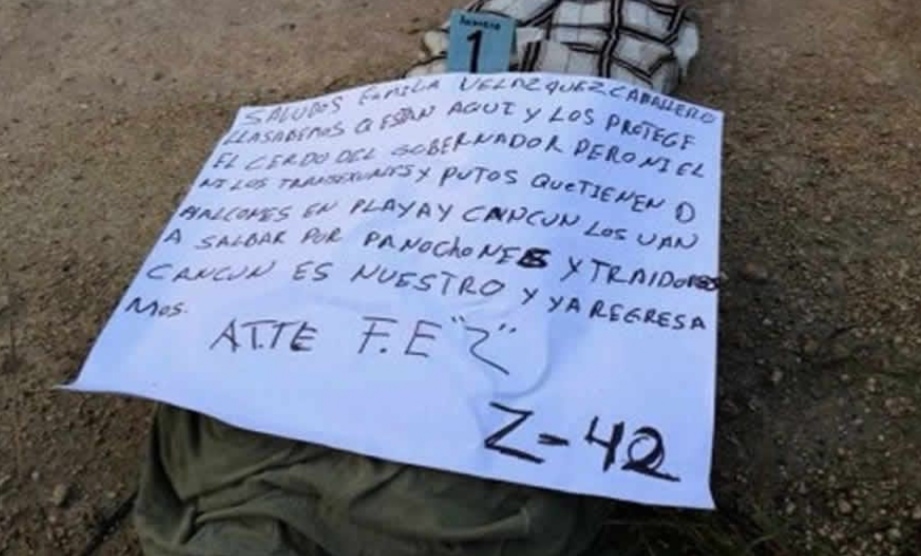 INDICIO
1
SALUDOS FAMILA VELAZQUEZ CABALLERO
LLASABEMOS Q ESTAN AQUI Y LOS PROTEGE
EL CERDO DEL GOBERNADOR PERO NI EL
NI LOS TRANSEXUALES Y PUTOS QUE TIENEN D
HALCONES EN PLAYA Y CANCUN LOS VAN
A SALBAR POR PANOCHONES Y TRAIDORES
CANCUN ES NUESTRO Y YA REGRESA
MOS.
ATTE F.E "Z"
Z-42